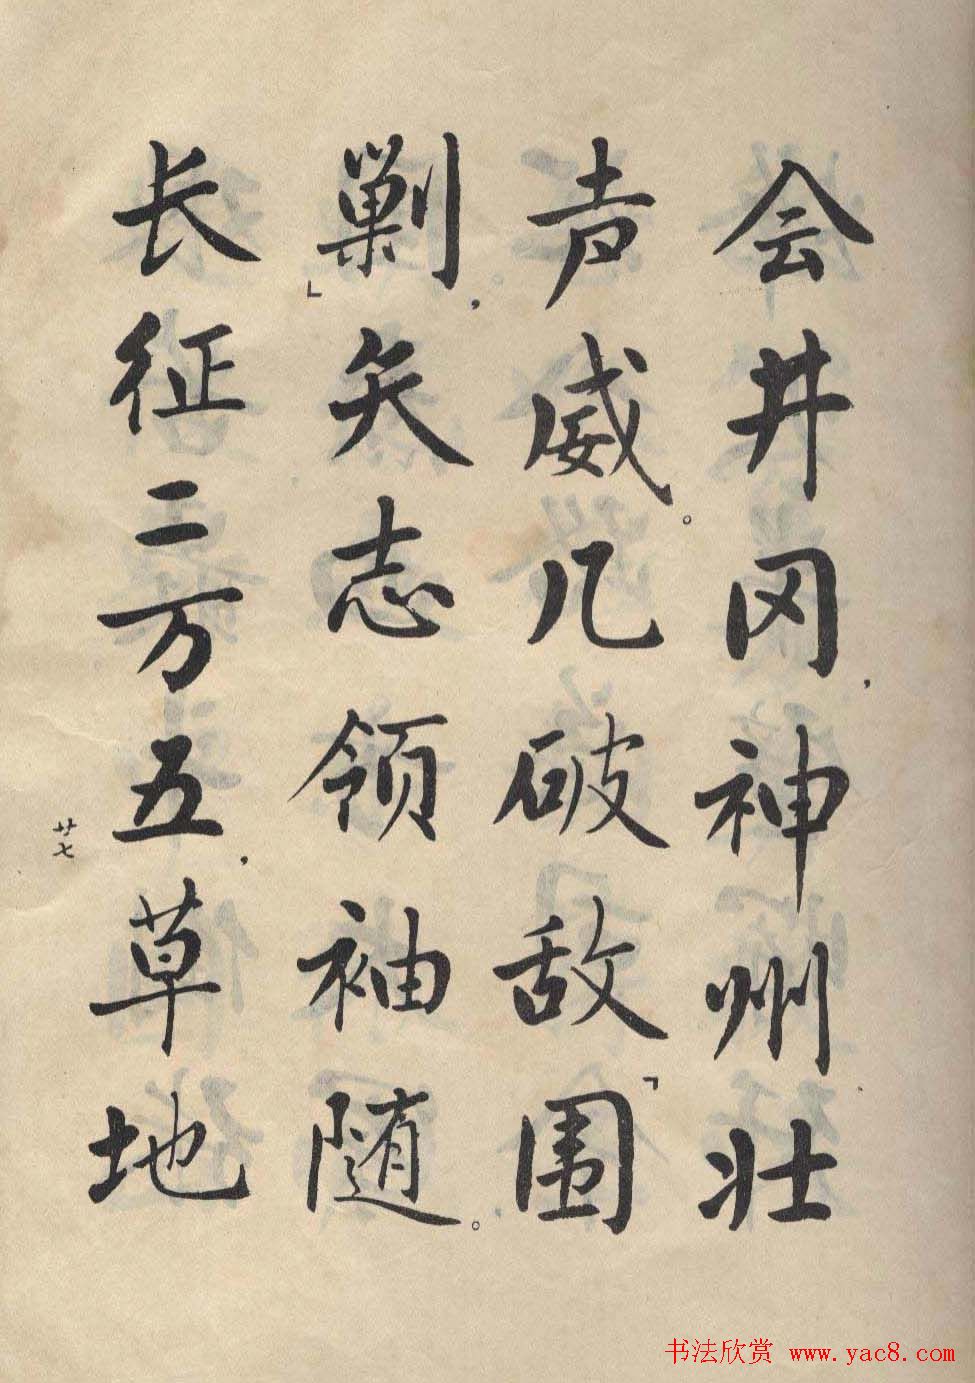 会井冈，神州壮
声威。几破敌「围
剿」，矢志领袖随。
长征二万五，草地
廿七
书法欣赏 www.yac8.com